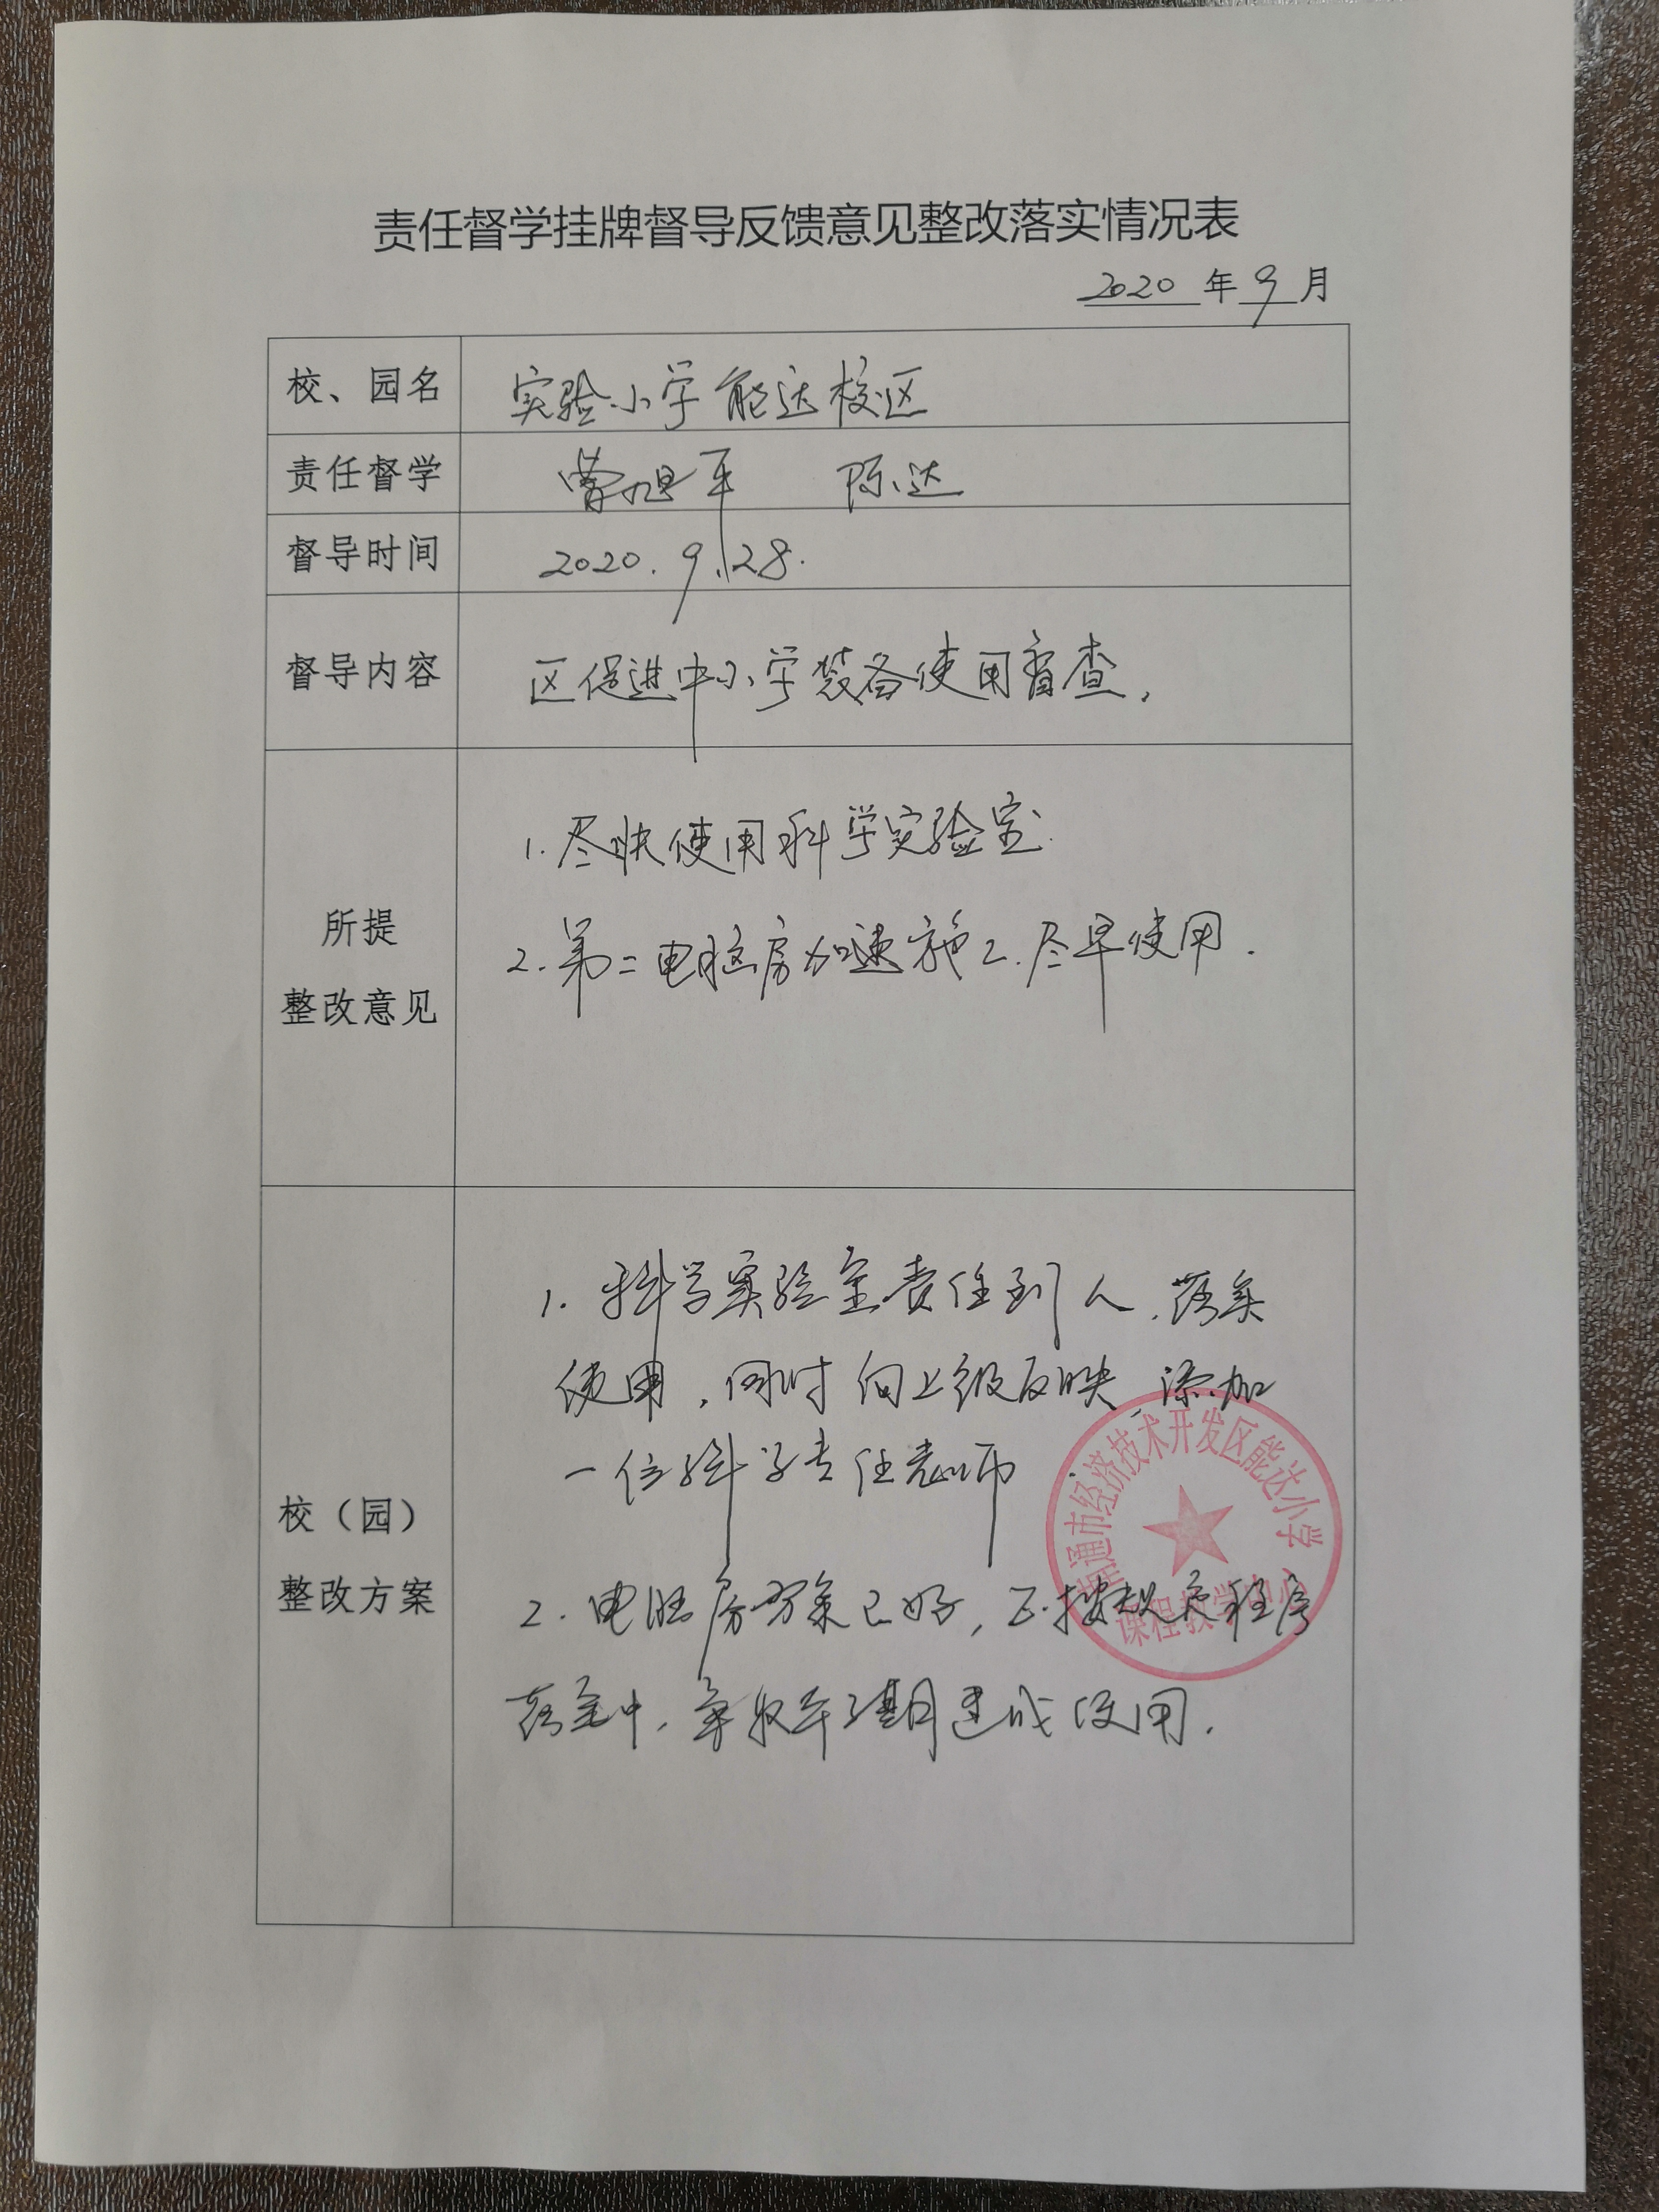 责任督学挂牌督导反馈意见整改落实情况表
2020 年 9 月
校、园名 实验小学能达校区
责任督学 曹旭平 陈达
督导时间 2020.9.28.
督导内容 区促进中小学装备使用督查.
所提
整改意见
1.尽快使用科学实验室.
2.第二电脑房加速施工.尽早使用.
校（园）
整改方案
1.科学实验室责任到人.落实
使用,同时向上级反映,添加
一位科学专任老师
2.电脑房方案已好,正按规定程序
落实中,争取年
建成使用.
南通市经济技术开发区能达小学
课程教学中心